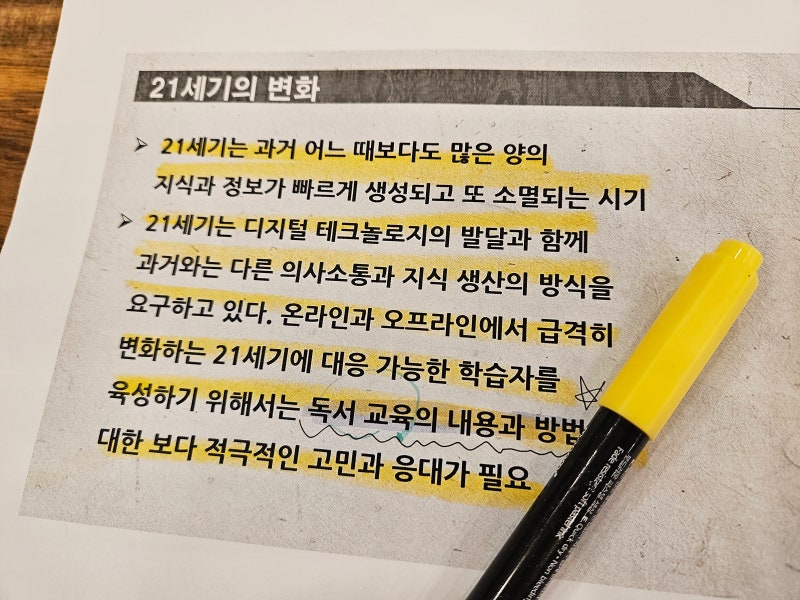 21세기의 변화
➢ 21세기는 과거 어느 때보다도 많은 양의
지식과 정보가 빠르게 생성되고 또 소멸되는 시기
➢ 21세기는 디지털 테크놀로지의 발달과 함께
과거와는 다른 의사소통과 지식 생산의 방식을
요구하고 있다. 온라인과 오프라인에서 급격히
변화하는 21세기에 대응 가능한 학습자를
육성하기 위해서는 독서 교육의 내용과 방법
대한 보다 적극적인 고민과 응대가 필요
Fade resistant soft pastel ink
Quick dry · Non bleeding